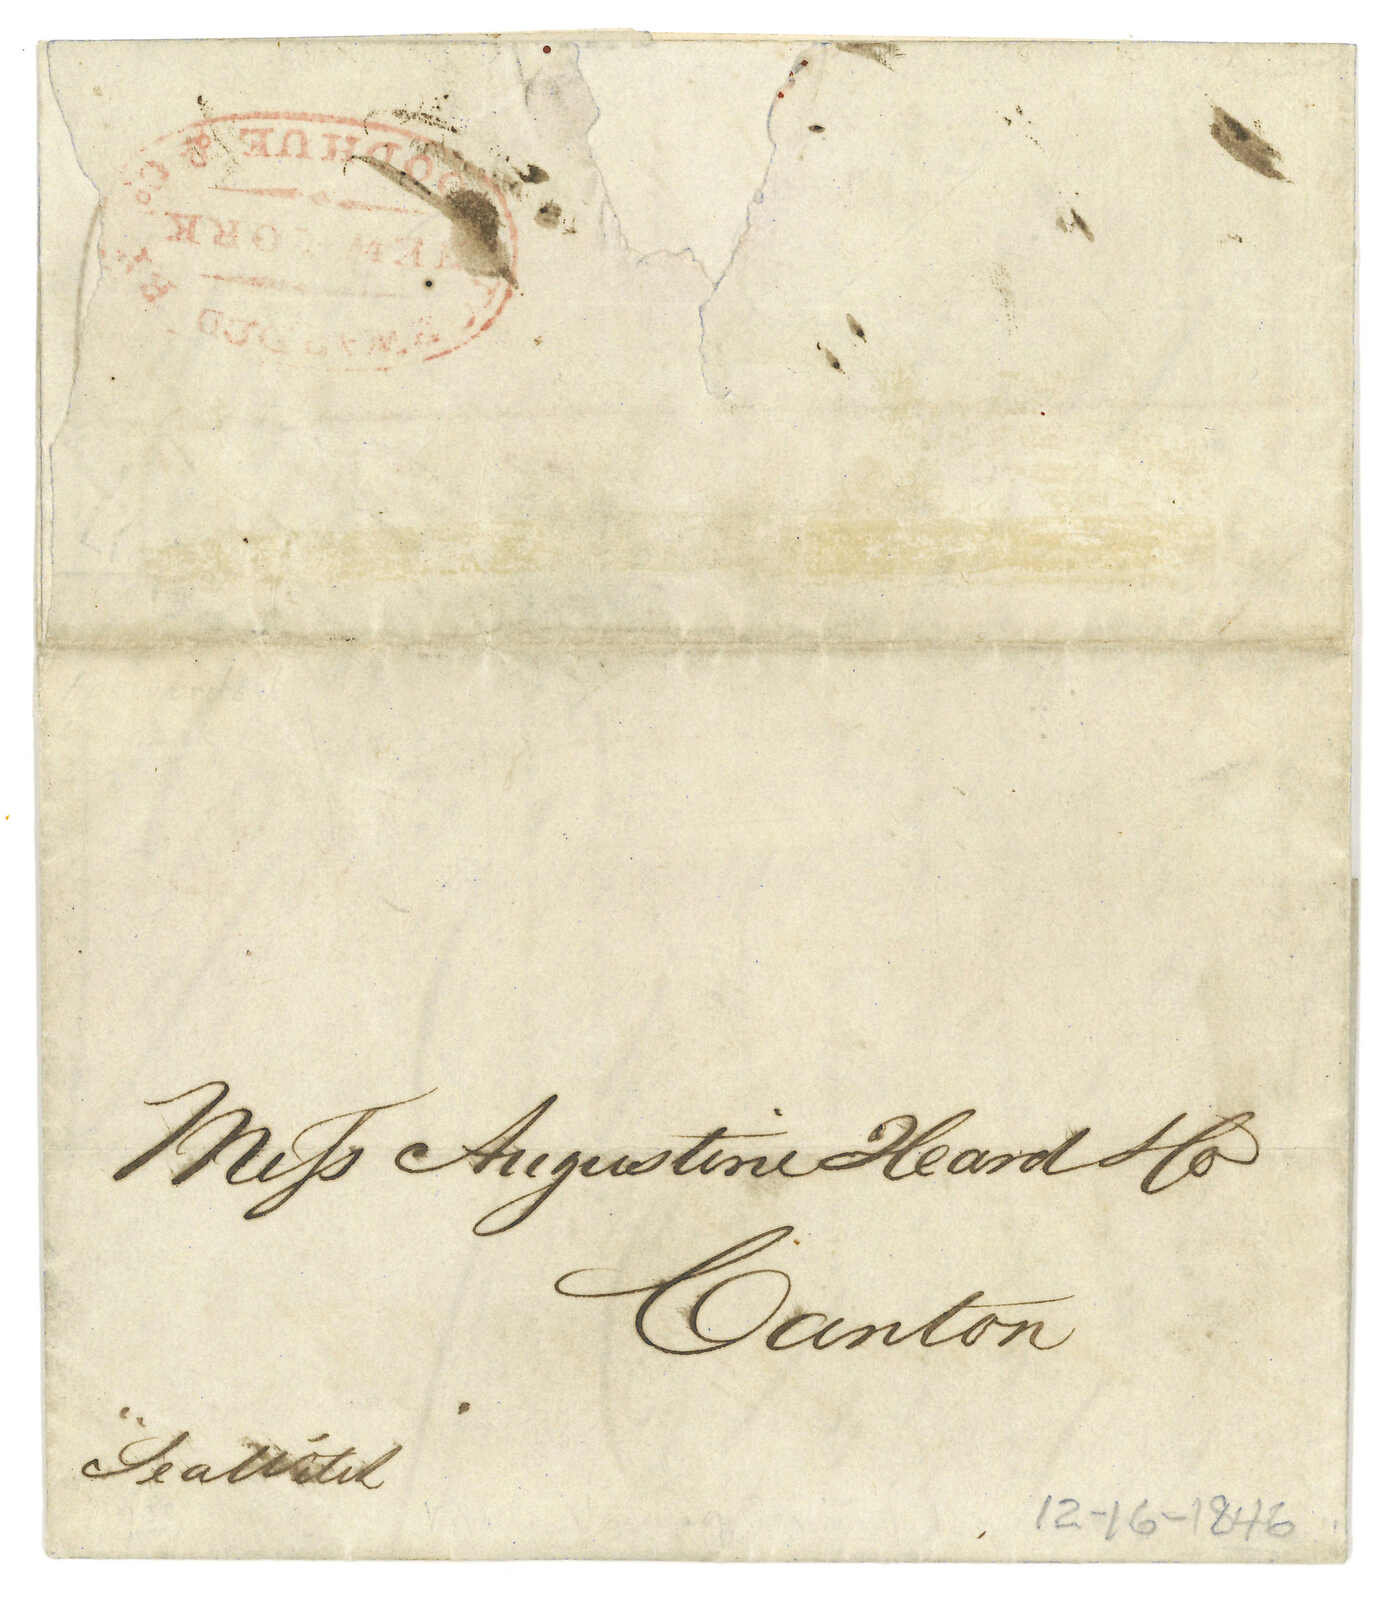 FORWARDED BY
GOODHUE & Co.
NEW YORK
Mess Augustine Heard & Co
Canton
"Sea Witch"
12-16-1846